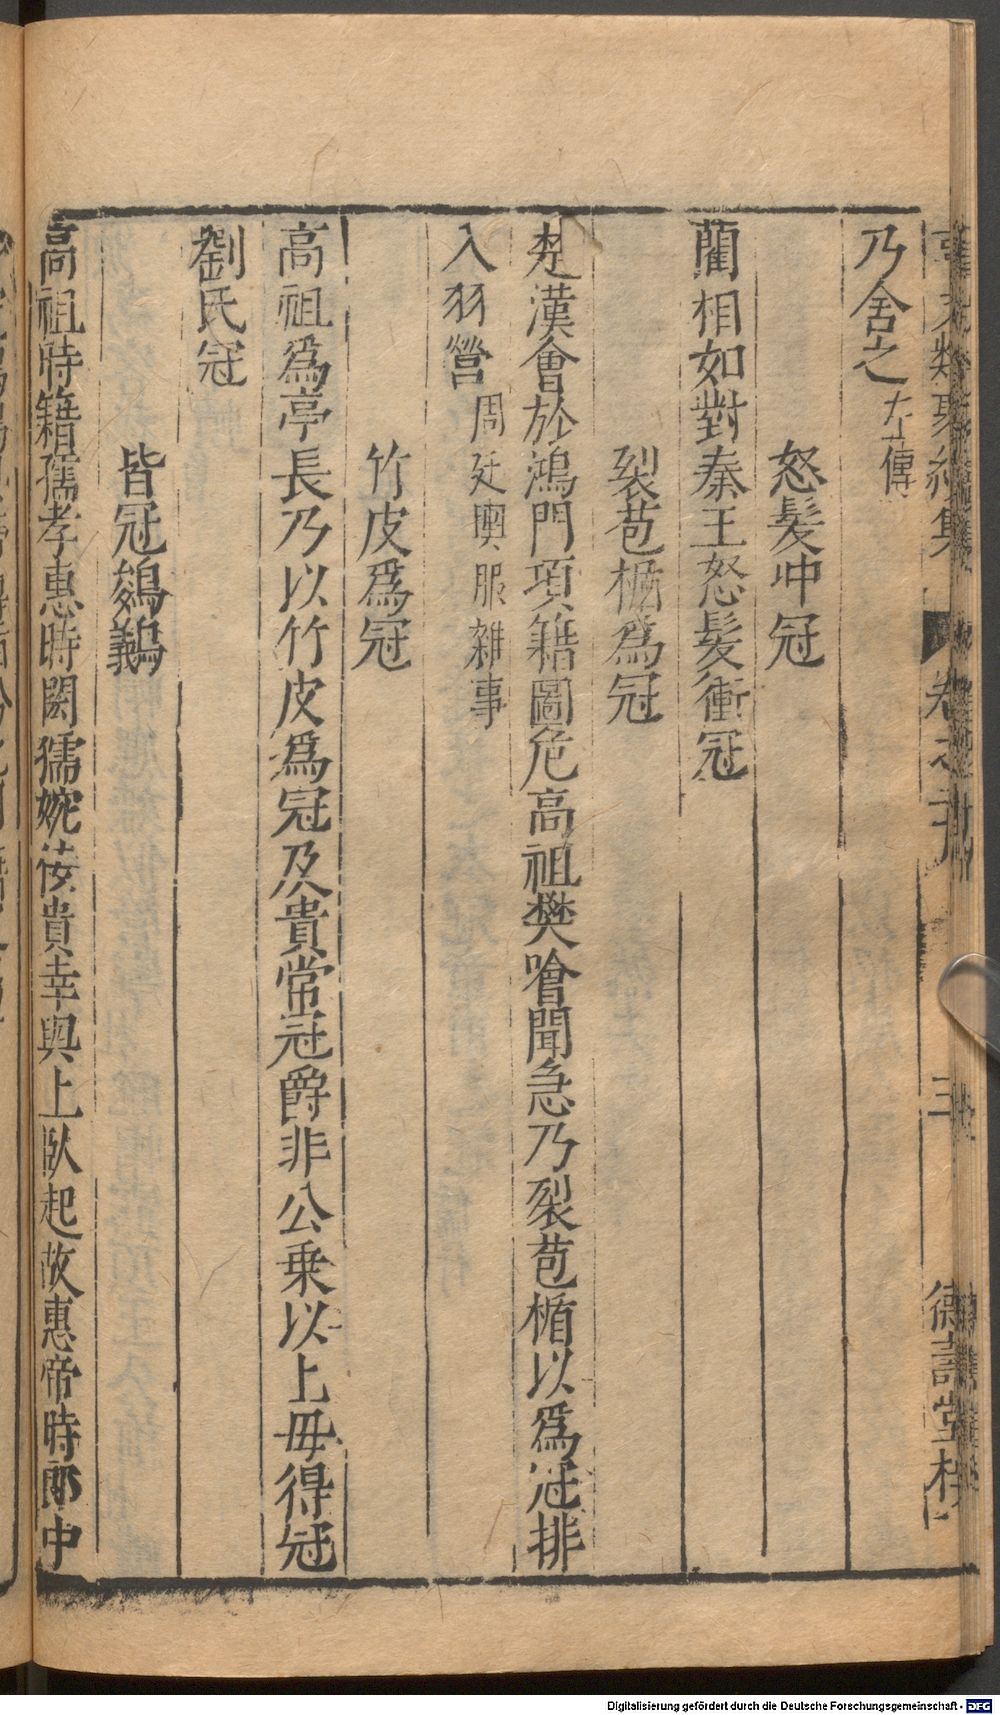 乃舍之 左傳
怒髮冲冠
藺相如對秦王怒髮衝冠
裂苞楯爲冠
楚漢會於鴻門項籍圖危高祖樊噲聞急乃裂苞楯以爲冠排
入羽營 周廷輿服雜事
竹皮爲冠
高祖爲亭長乃以竹皮爲冠及貴常冠爵非公乗以上毋得冠
劉氏冠
皆冠鵕鸃
高祖時籍孺孝惠時閎孺婉佞貴幸與上臥起故惠帝時郎中
Digitalisierung gefördert durch die Deutsche Forschungsgemeinschaft - DFG